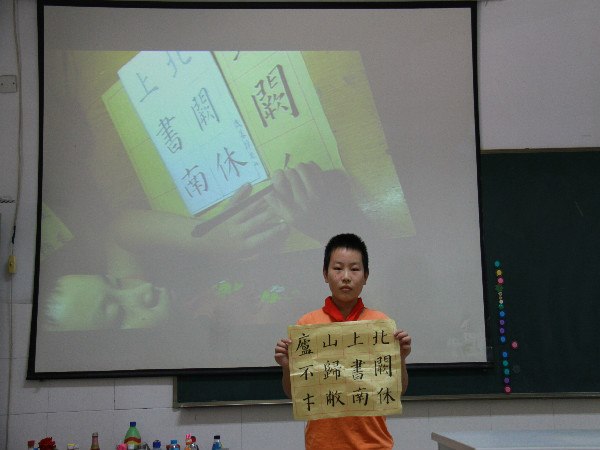 北闕休
上書南
闕
北闕休
上書南
山歸敝
廬不才